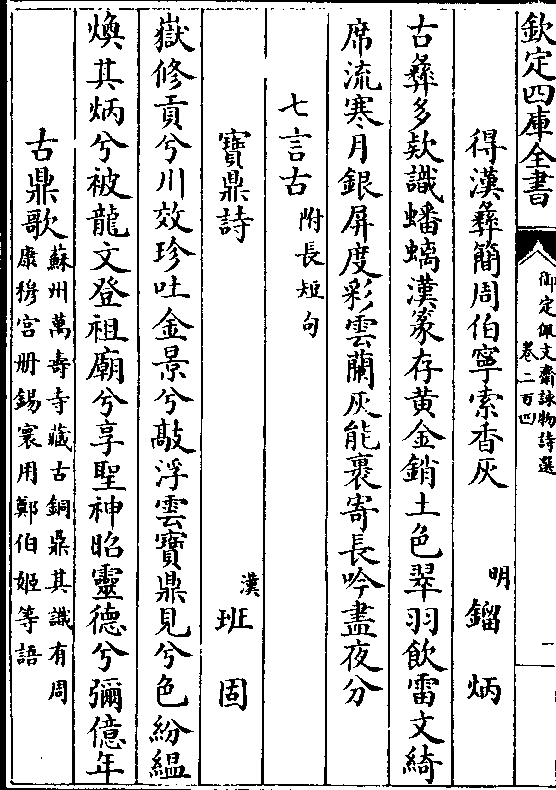 欽定四庫全書
御定佩文齋詠物詩選
卷二百四
一
得漢彝簡周伯寧索香灰
明
鎦炳
古彝多欵識蟠螭漢篆存黄金銷土色翠羽飲雷文綺
席流寒月銀屏度彩雲蘭灰能裹寄長吟盡夜分
七言古附長短句
寶鼎詩
漢
班固
嶽修貢兮川效珍吐金景兮歊浮雲寶鼎見兮色紛緼
煥其炳兮被龍文登祖廟兮享聖神昭靈德兮彌億年
古鼎歌
蘇州萬壽寺藏古銅鼎其識有周
康穆宫册錫寰用鄭伯姬等語